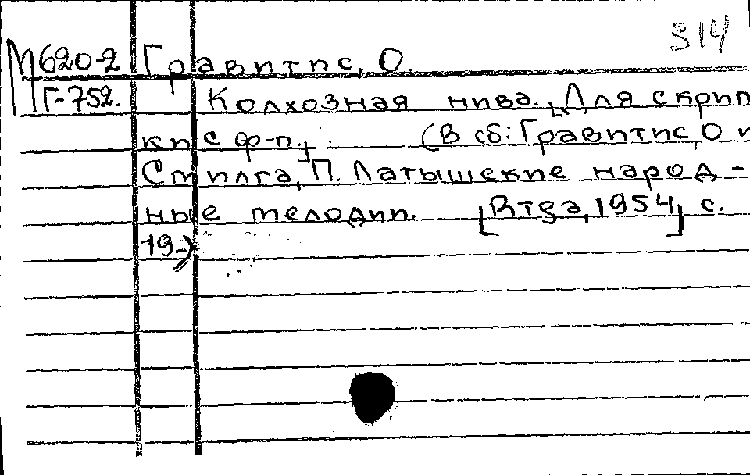 314
М620-2 Гравитис, О.
Г-752. Колхозная нива. [Для скрип
ки с ф-п.] (В сб: Гравитис, О и
Стилга, П. Латышские народ-
ные мелодии. [Рига, 1954] с.
19-)